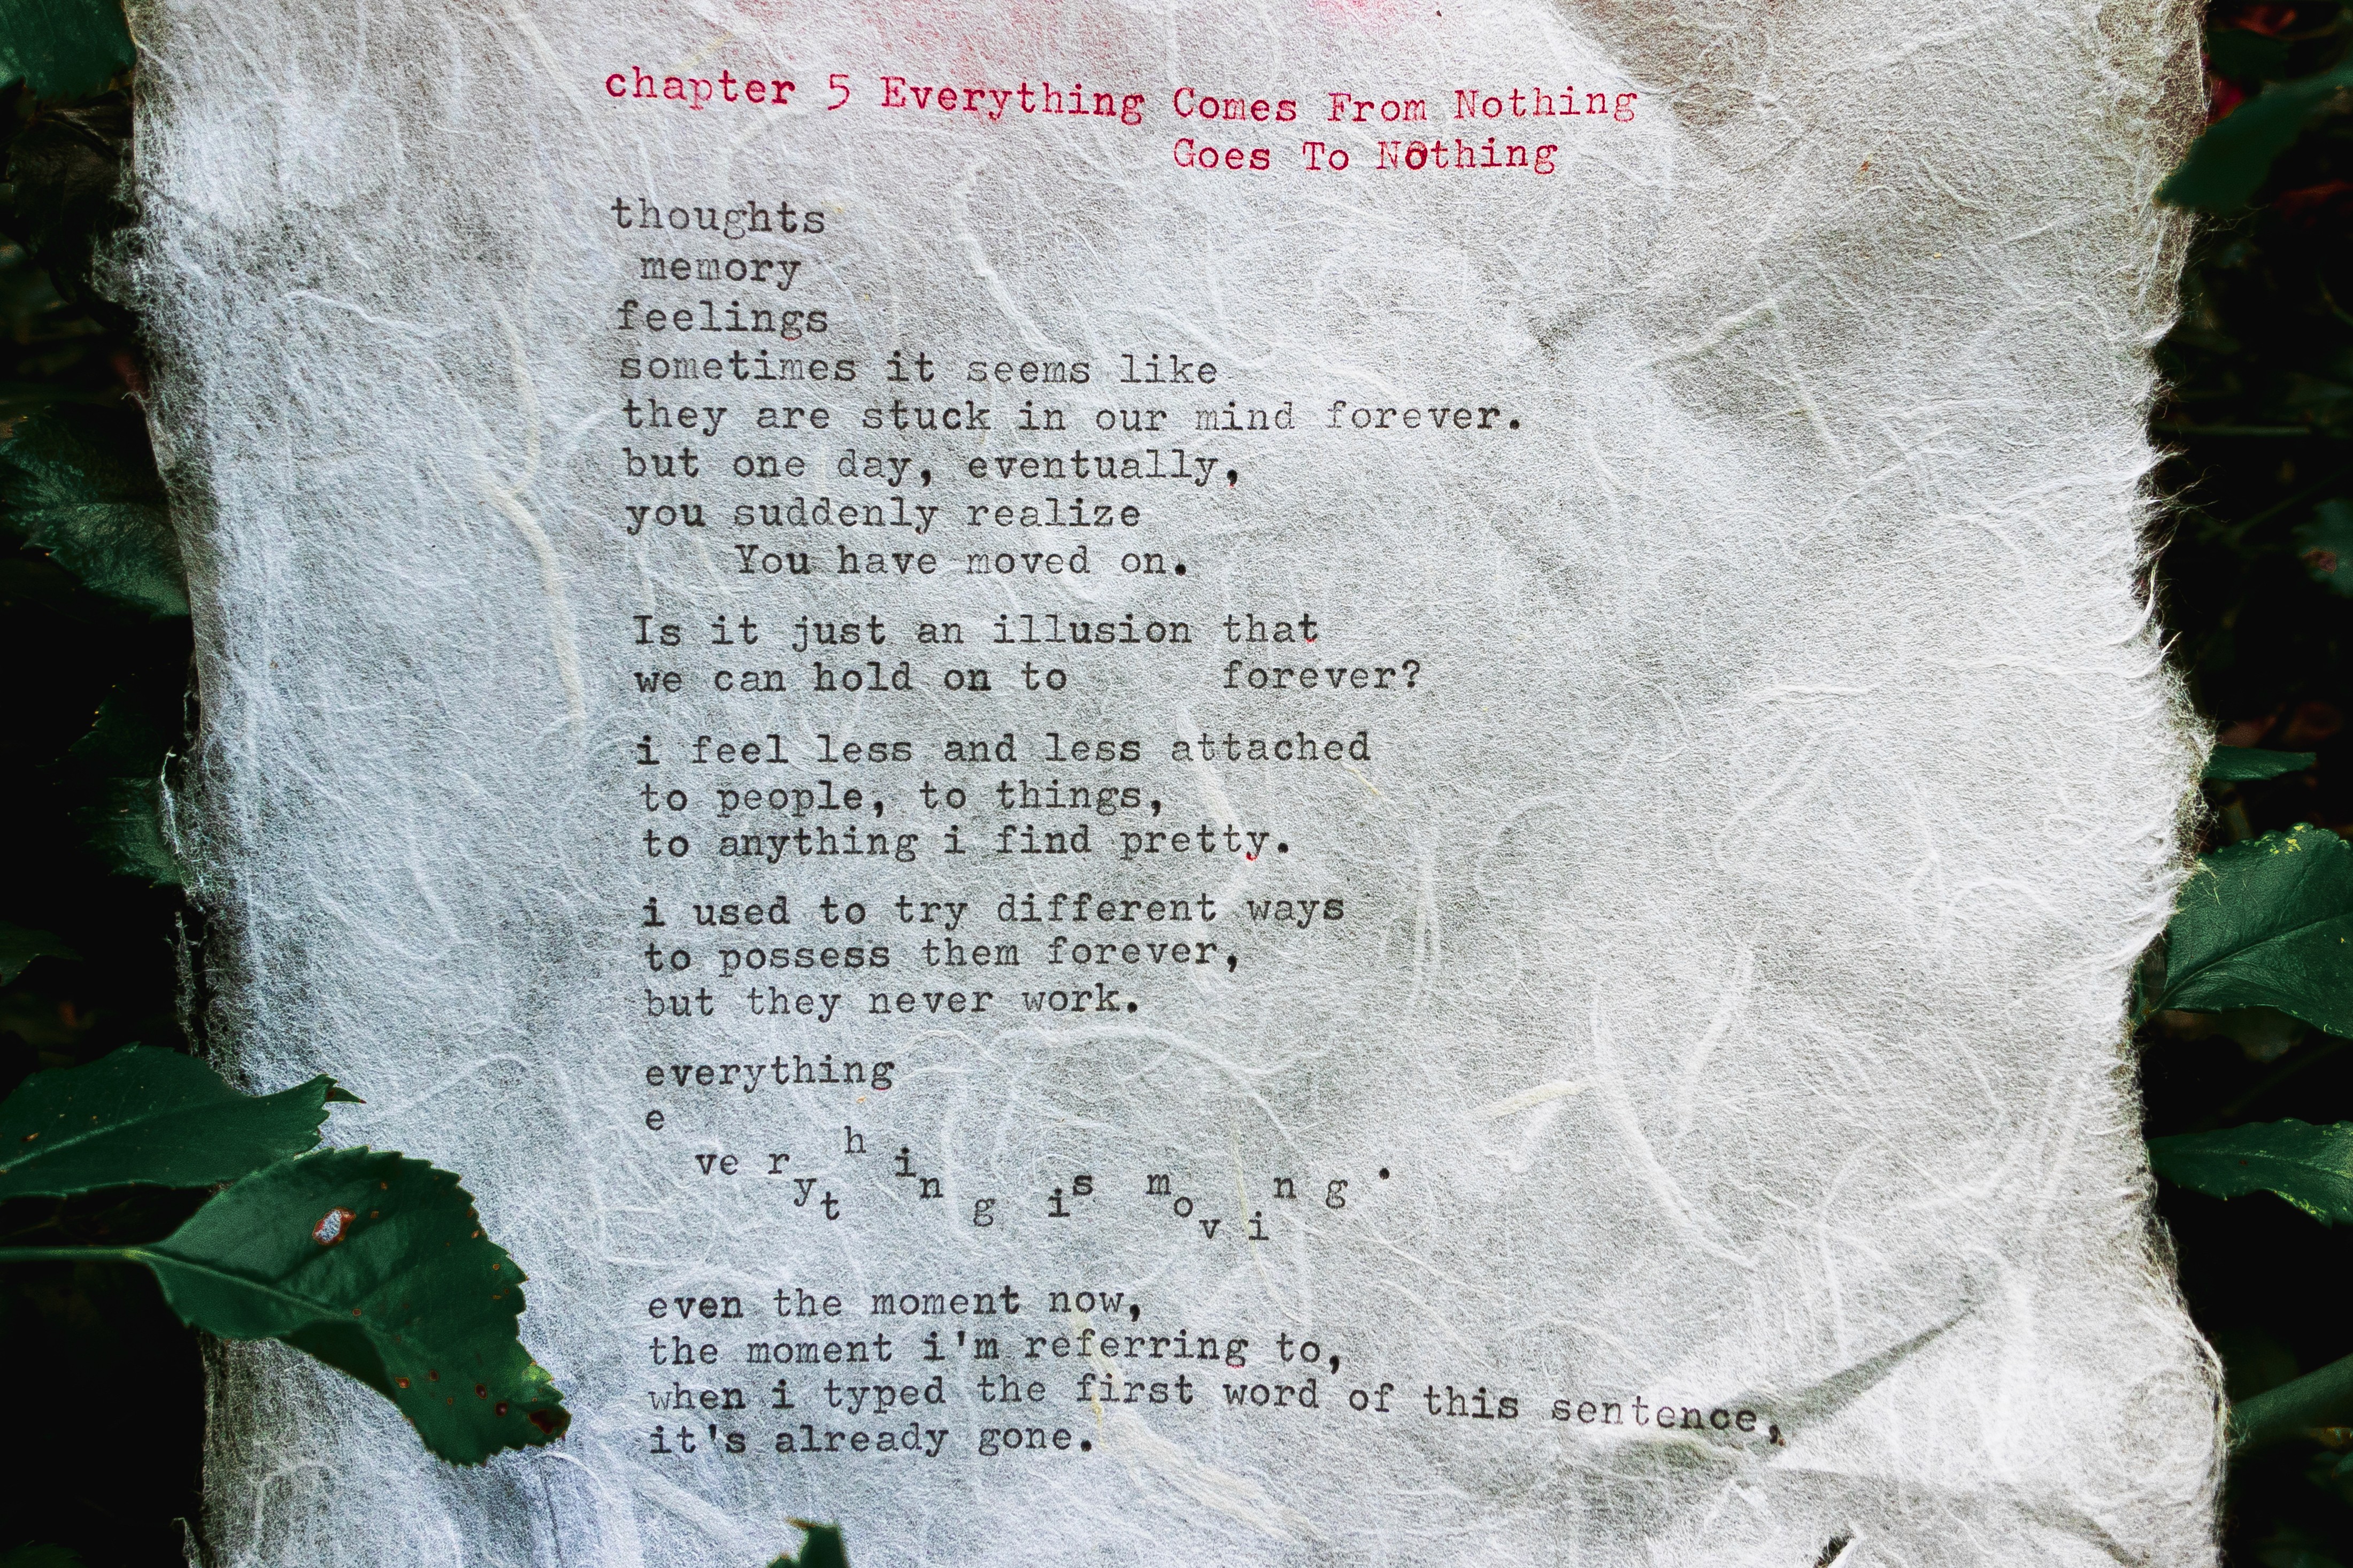 chapter 5 Everything Comes From Nothing
Goes To Nothing
thoughts
memory
feelings
sometimes it seems like
they are stuck in our mind forever.
but one day, eventually,
you suddenly realize
You have moved on.
Is it just an illusion that
we can hold on to forever?
i feel less and less attached
to people, to things,
to anything i find pretty.
i used to try different ways
to possess them forever,
but they never work.
everything
everything is moving.
even the moment now,
the moment i'm referring to,
when i typed the first word of this sentence,
it's already gone.